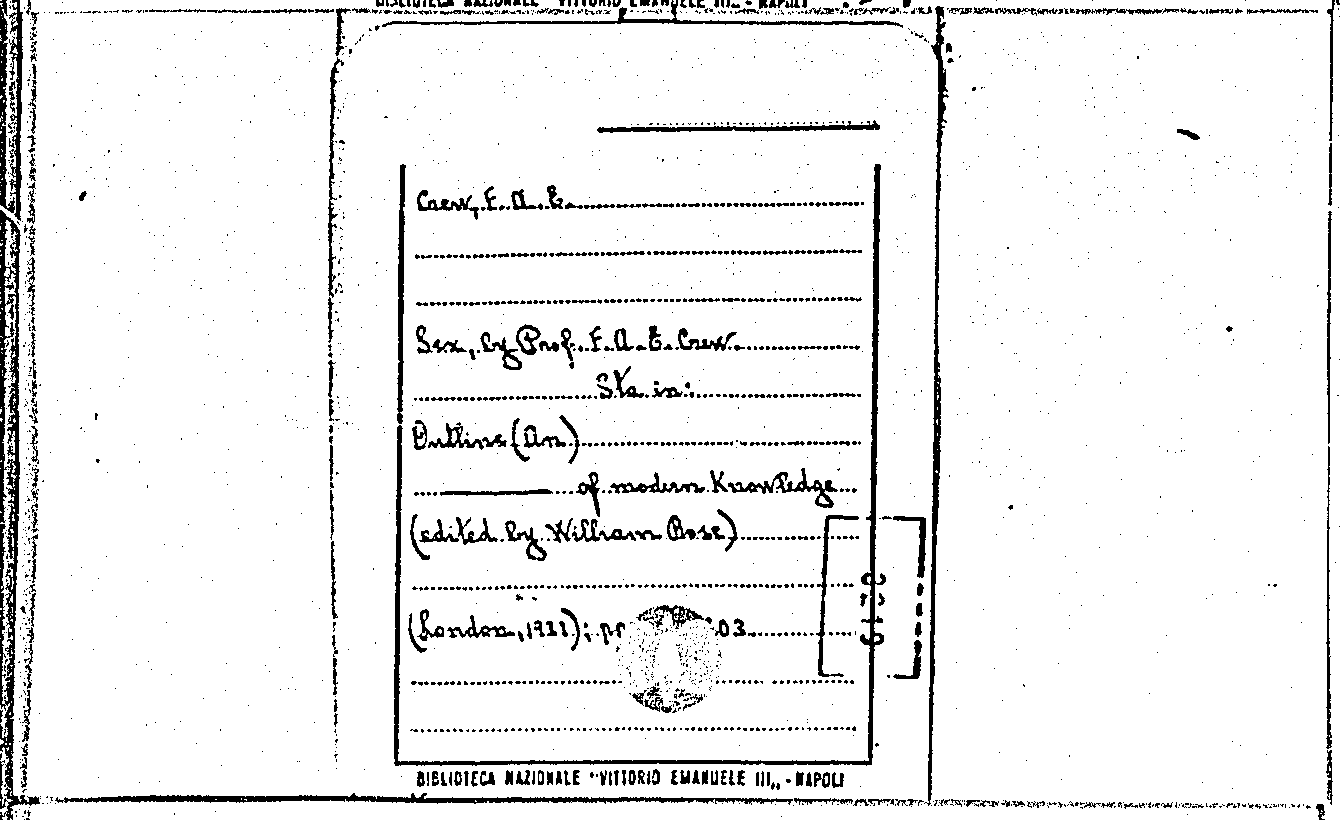 BIBLIOTECA NAZIONALE "VITTORIO EMANUELE III„ - NAPOLI
Crew, F. A. E.
Sex, by Prof. F. A. E. Crew.
Sta in:
Outline (An)
of modern Knowledge
(edited by William Rose)
(London, 1931); pp 03
BIBLIOTECA NAZIONALE "VITTORIO EMANUELE III„ - NAPOLI